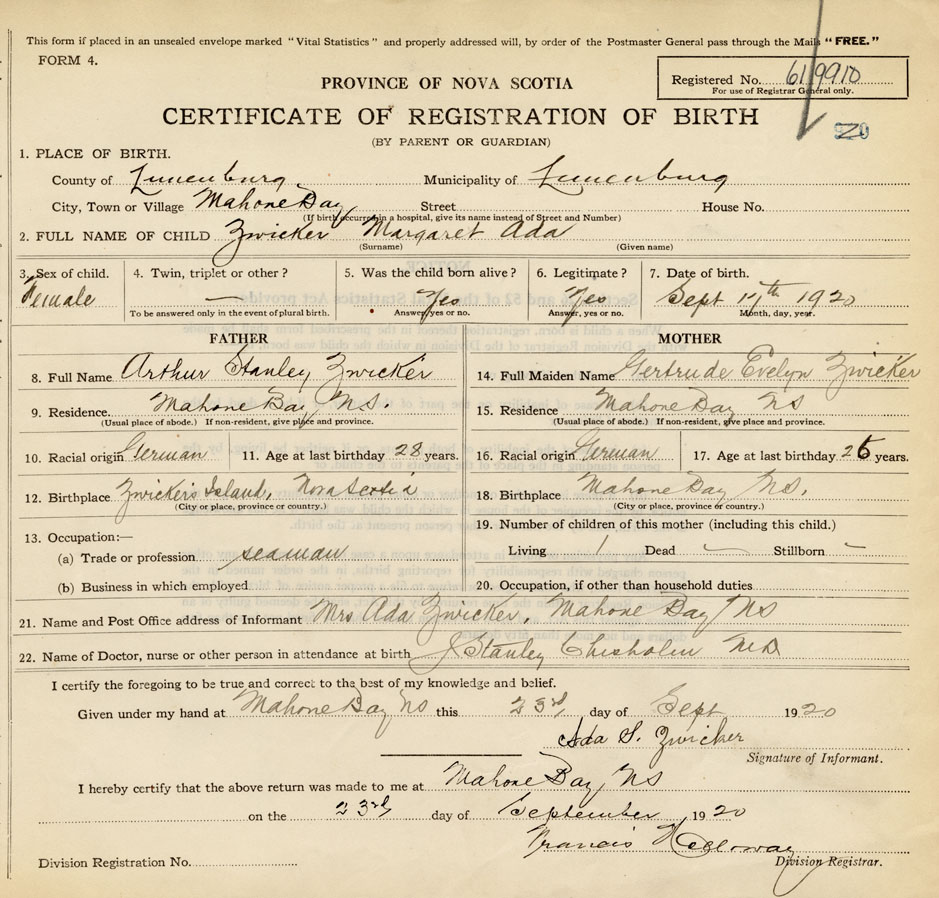 This form if placed in an unsealed envelope marked "Vital Statistics" and properly addressed will, by order of the Postmaster General pass through the Mails "FREE."
FORM 4.
Registered No. 619910
For use of Registrar General only.
PROVINCE OF NOVA SCOTIA
CERTIFICATE OF REGISTRATION OF BIRTH
(BY PARENT OR GUARDIAN)
1. PLACE OF BIRTH.
County of Lunenburg Municipality of Lunenburg
City, Town or Village Mahone Bay Street House No.
(If birth occurred in a hospital, give its name instead of Street and Number)
2. FULL NAME OF CHILD Zwicker Margaret Ada
(Surname) (Given name)
3. Sex of child. 4. Twin, triplet or other? 5. Was the child born alive? 6. Legitimate? 7. Date of birth.
Female — Yes Yes Sept th 1920
To be answered only in the event of plural birth. Answer, yes or no. Answer, yes or no. Month, day, year.
FATHER MOTHER
8. Full Name Arthur Stanley Zwicker 14. Full Maiden Name Gertrude Evelyn Zwicker
9. Residence Mahone Bay, N.S. 15. Residence Mahone Bay NS
(Usual place of abode.) If non-resident, give place and province. (Usual place of abode.) If non-resident, give place and province.
10. Racial origin German 11. Age at last birthday 28 years. 16. Racial origin German 17. Age at last birthday 26 years.
12. Birthplace Zwicker's Island, Nova Scotia 18. Birthplace Mahone Bay NS.
(City or place, province or country.) (City or place, province or country.)
13. Occupation:— 19. Number of children of this mother (including this child.)
(a) Trade or profession seaman Living 1 Dead — Stillborn –
(b) Business in which employed 20. Occupation, if other than household duties
21. Name and Post Office address of Informant Mrs Ada Zwicker, Mahone Bay NS
22. Name of Doctor, nurse or other person in attendance at birth J Stanley Chisholm MD
I certify the foregoing to be true and correct to the best of my knowledge and belief.
Given under my hand at Mahone Bay NS this 23rd day of Sept 1920
Ada S. Zwicker
Signature of Informant.
I hereby certify that the above return was made to me at Mahone Bay, NS
on the 23rd day of September, 1920
Francis
Division Registration No. Division Registrar.